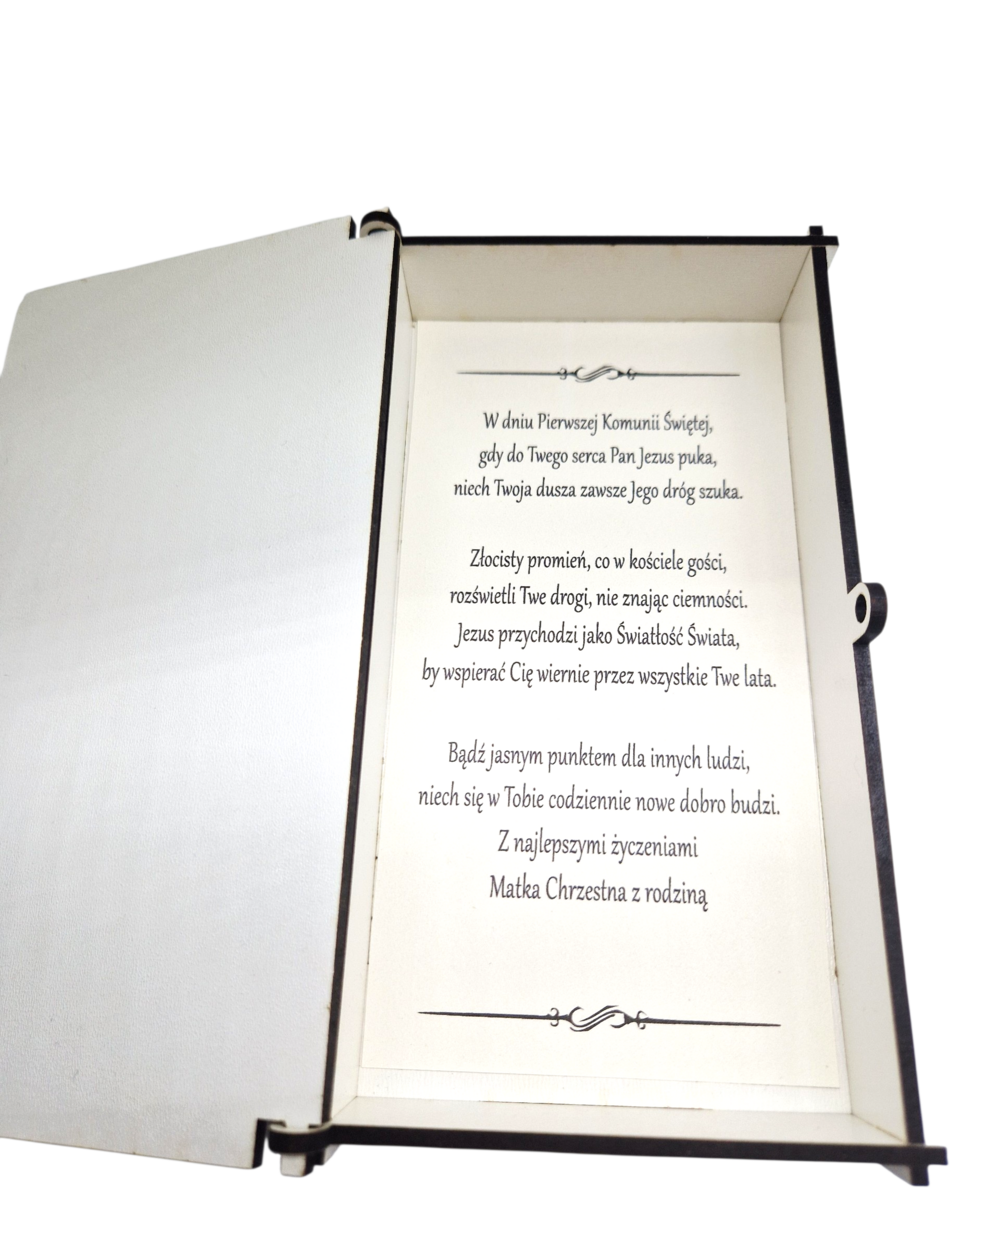 W dniu Pierwszej Komunii Świętej,
gdy do Twego serca Pan Jezus puka,
niech Twoja dusza zawsze Jego dróg szuka.
Złocisty promień, co w kościele gości,
rozświetli Twe drogi, nie znając ciemności.
Jezus przychodzi jako Światłość Świata,
by wspierać Cię wiernie przez wszystkie Twe lata.
Bądź jasnym punktem dla innych ludzi,
niech się w Tobie codziennie nowe dobro budzi.
Z najlepszymi życzeniami
Matka Chrzestna z rodziną